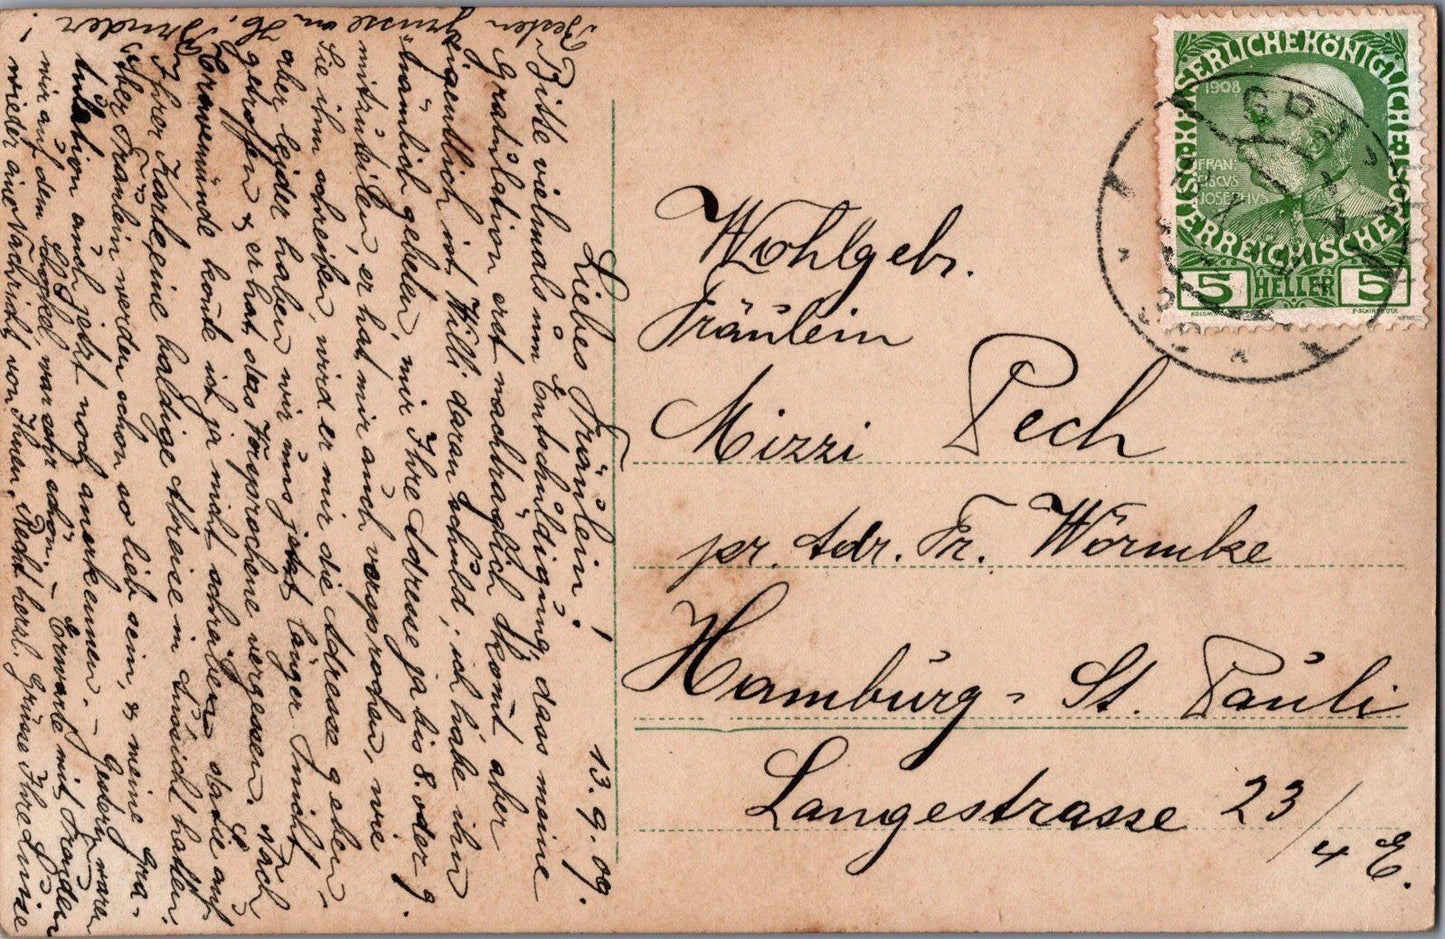 13.9.09.
Liebes Fräulein!
Bitte vielmals um Entschuldigung, dass meine
Gratulation erst nachträglich kommt aber
eigentlich ist Willi daran schuld, ich habe ihn
nämlich gebeten, mir Ihre Adresse ja bis 8. oder 9.
mitzuteilen, er hat mir auch versprochen, wie
Sie ihm schreiben, wird er mir die Adresse geben,
aber leider haben wir uns jetzt länger nicht
getroffen & er hat das Versprochene vergessen. Nach
Travemünde konnte ich ja nicht schreiben, da Sie auf
Ihrer Karte eine baldige Abreise in Aussicht hatten.
Aber Fräulein werden schon so lieb sein, & meine Gra-
tulation auch jetzt noch anerkennen. – Gestern waren
wir auf dem Kogel, war sehr schön. – Erwarte mit Freuden
wieder eine Nachricht von Ihnen. Recht herzl. Grüsse Ihre Luise
Besten Grüsse an H. Bruder!
Wohlgeb.
Fräulein
Mizzi Pech
pr. Adr. Fr. Wörmke
Hamburg - St. Pauli
Langestrasse 23/4 E.
KAISERLICHEKÖNIGLICHE
ÖSTERREICHISCHE
POST
1908
FRAN-
CISCVS
JOSEPHVS
5 HELLER 5